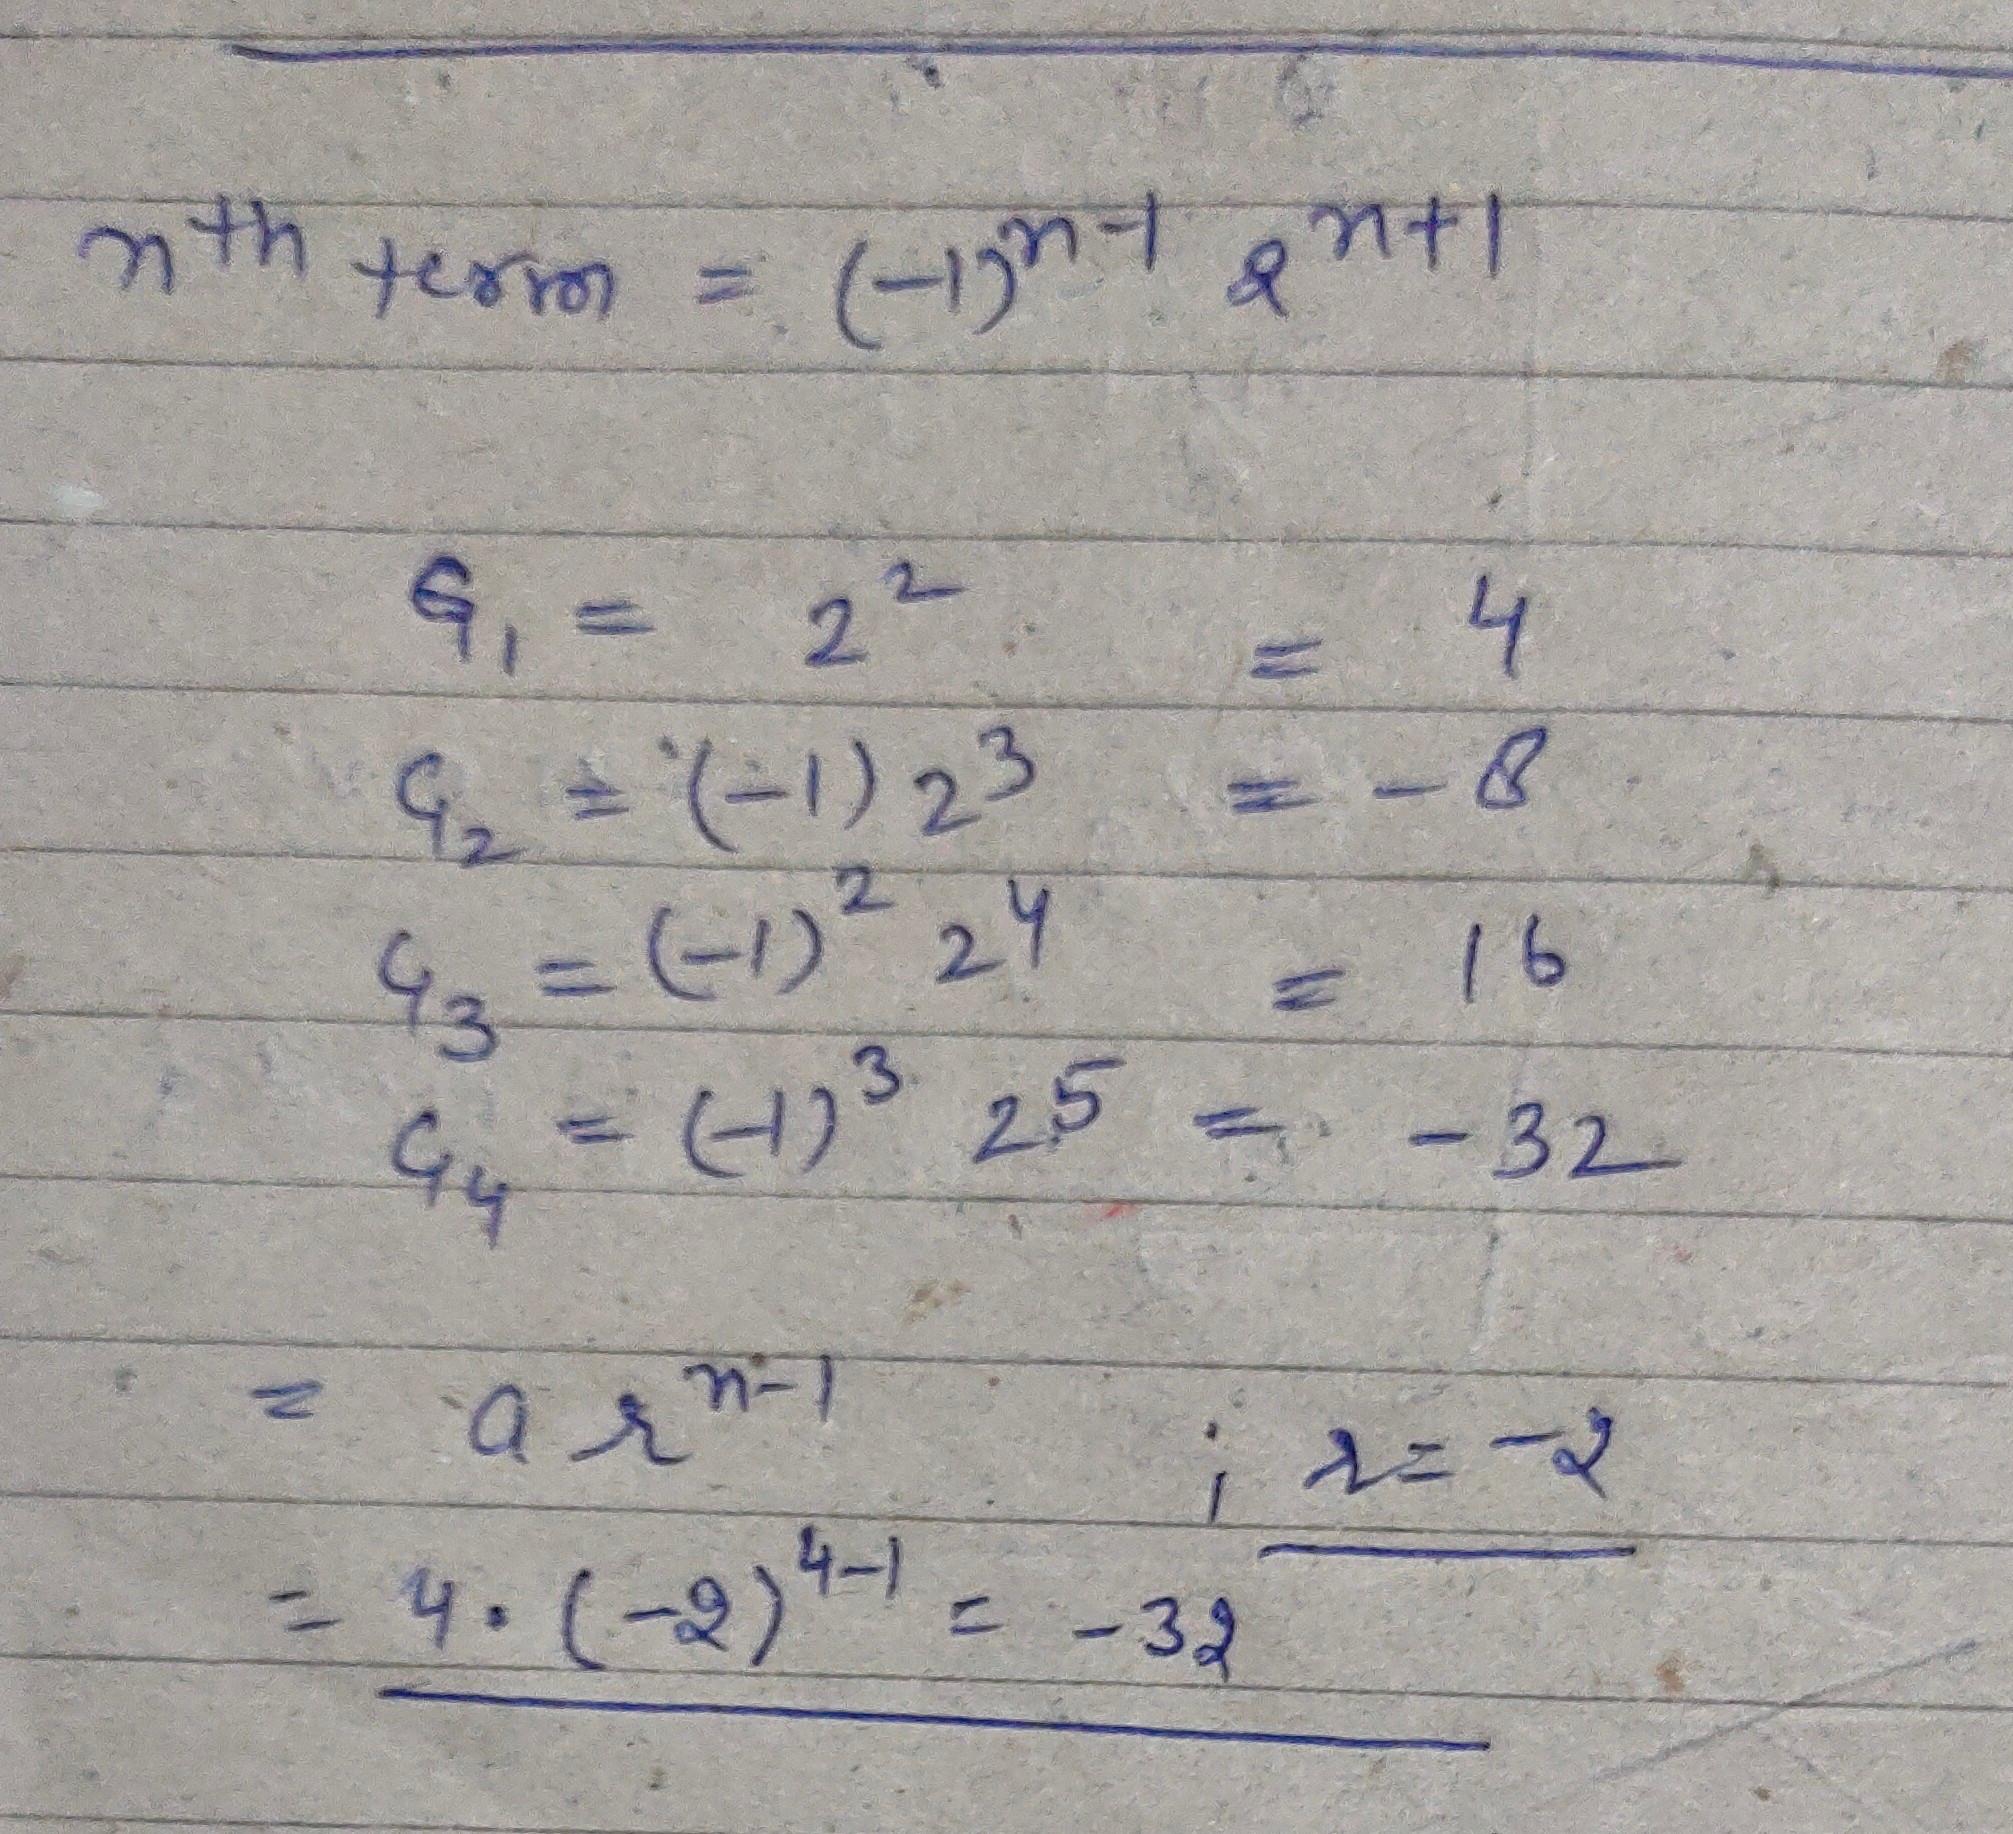 nth term = (-1)^n-1 2^n+1
G₁ = 2² = 4
G₂ = (-1) 2³ = -8
G₃ = (-1)² 2⁴ = 16
G₄ = (-1)³ 2⁵ = -32
= a r^n-1 ; r = -2
= 4 · (-2)^4-1 = -32